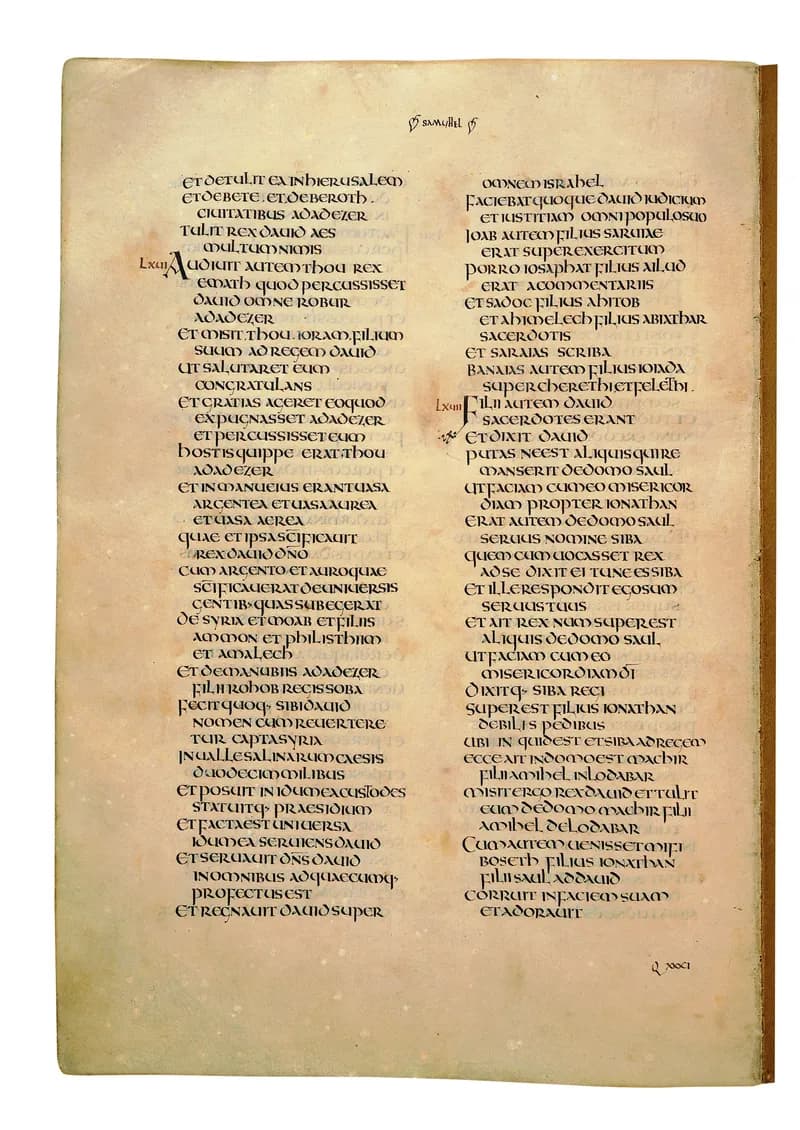 SAMUHEL
ET DETULIT EA IN HIERUSALEM
ET DE BETE. ET DE BEROTH.
CIUITATIBUS ADADEZER
TULIT REX DAUID AES
MULTUM NIMIS
LXIII AUDIUIT AUTEM THOU REX
EMATH QUOD PERCUSSISSET
DAUID OMNE ROBUR
ADADEZER
ET MISIT. THOU. IORAM. FILIUM
SUUM AD REGEM DAUID
UT SALUTARET EUM
CONGRATULANS
ET GRATIAS AGERET EO QUOD
EXPUGNASSET ADADEZER
ET PERCUSSISSET EUM
HOSTIS QUIPPE ERAT. THOU
ADADEZER
ET IN MANU EIUS ERANT UASA
ARGENTEA ET UASA AUREA
ET UASA AEREA
QUAE ET IPSA SC̅IFICAUIT
REX DAUID DN̅O
CUM ARGENTO ET AURO QUAE
SC̅IFICAUERAT DE UNIUERSIS
GENTIB· QUAS SUBEGERAT
DE SYRIA ET MOAB ET FILIIS
AMMON ET PHILISTHIIM
ET AMALECH
ET DE MANUBIIS ADADEZER
FILII ROHOB REGIS SOBA
FECIT QUOQ· SIBI DAUID
NOMEN CUM REUERTERE
TUR CAPTA SYRIA
IN UALLE SALINARUM CAESIS
DUODECIM MILIBUS
ET POSUIT IN IDUMEA CUSTODES
STATUITQ· PRAESIDIUM
ET FACTA EST UNIUERSA
IDUMEA SERUIENS DAUID
ET SERUAUIT DN̅S DAUID
IN OMNIBUS AD QUAECUMQ·
PROFECTUS EST
ET REGNAUIT DAUID SUPER
OMNEM ISRAHEL
FACIEBAT QUOQUE DAUID IUDICIUM
ET IUSTITIAM OMNI POPULO SUO
IOAB AUTEM FILIUS SARUIAE
ERAT SUPER EXERCITUM
PORRO IOSAPHAT FILIUS AILUD
ERAT A COMMENTARIIS
ET SADOC FILIUS AHITOB
ET AHIMELECH FILIUS ABIATHAR
SACERDOTIS
ET SARAIAS SCRIBA
BANAIAS AUTEM FILIUS IOIADA
SUPER CHERETHI ET FELETHI.
LXIIII FILII AUTEM DAUID
SACERDOTES ERANT
ET DIXIT DAUID
PUTASNE EST ALIQUIS QUI RE
MANSERIT DE DOMO SAUL
UT FACIAM CUM EO MISERICOR
DIAM PROPTER IONATHAN
ERAT AUTEM DE DOMO SAUL
SERUUS NOMINE SIBA
QUEM CUM UOCASSET REX
AD SE DIXIT EI TUNE ES SIBA
ET ILLE RESPONDIT EGO SUM
SERUUS TUUS
ET AIT REX NUM SUPEREST
ALIQUIS DE DOMO SAUL
UT FACIAM CUM EO
MISERICORDIAM DI̅
DIXITQ· SIBA REGI
SUPEREST FILIUS IONATHAN
DEBILIS PEDIBUS
UBI INQUID EST ET SIBA AD REGEM
ECCE AIT IN DOMO EST MACHIR
FILII AMIHEL IN LODABAR
MISIT ERGO REX DAUID ET TULIT
EUM DE DOMO MACHIR FILII
AMIHEL DE LODABAR
CUM AUTEM UENISSET MIFI
BOSETH FILIUS IONATHAN
FILII SAUL AD DAUID
CORRUIT IN FACIEM SUAM
ET ADORAUIT
Q XXXI